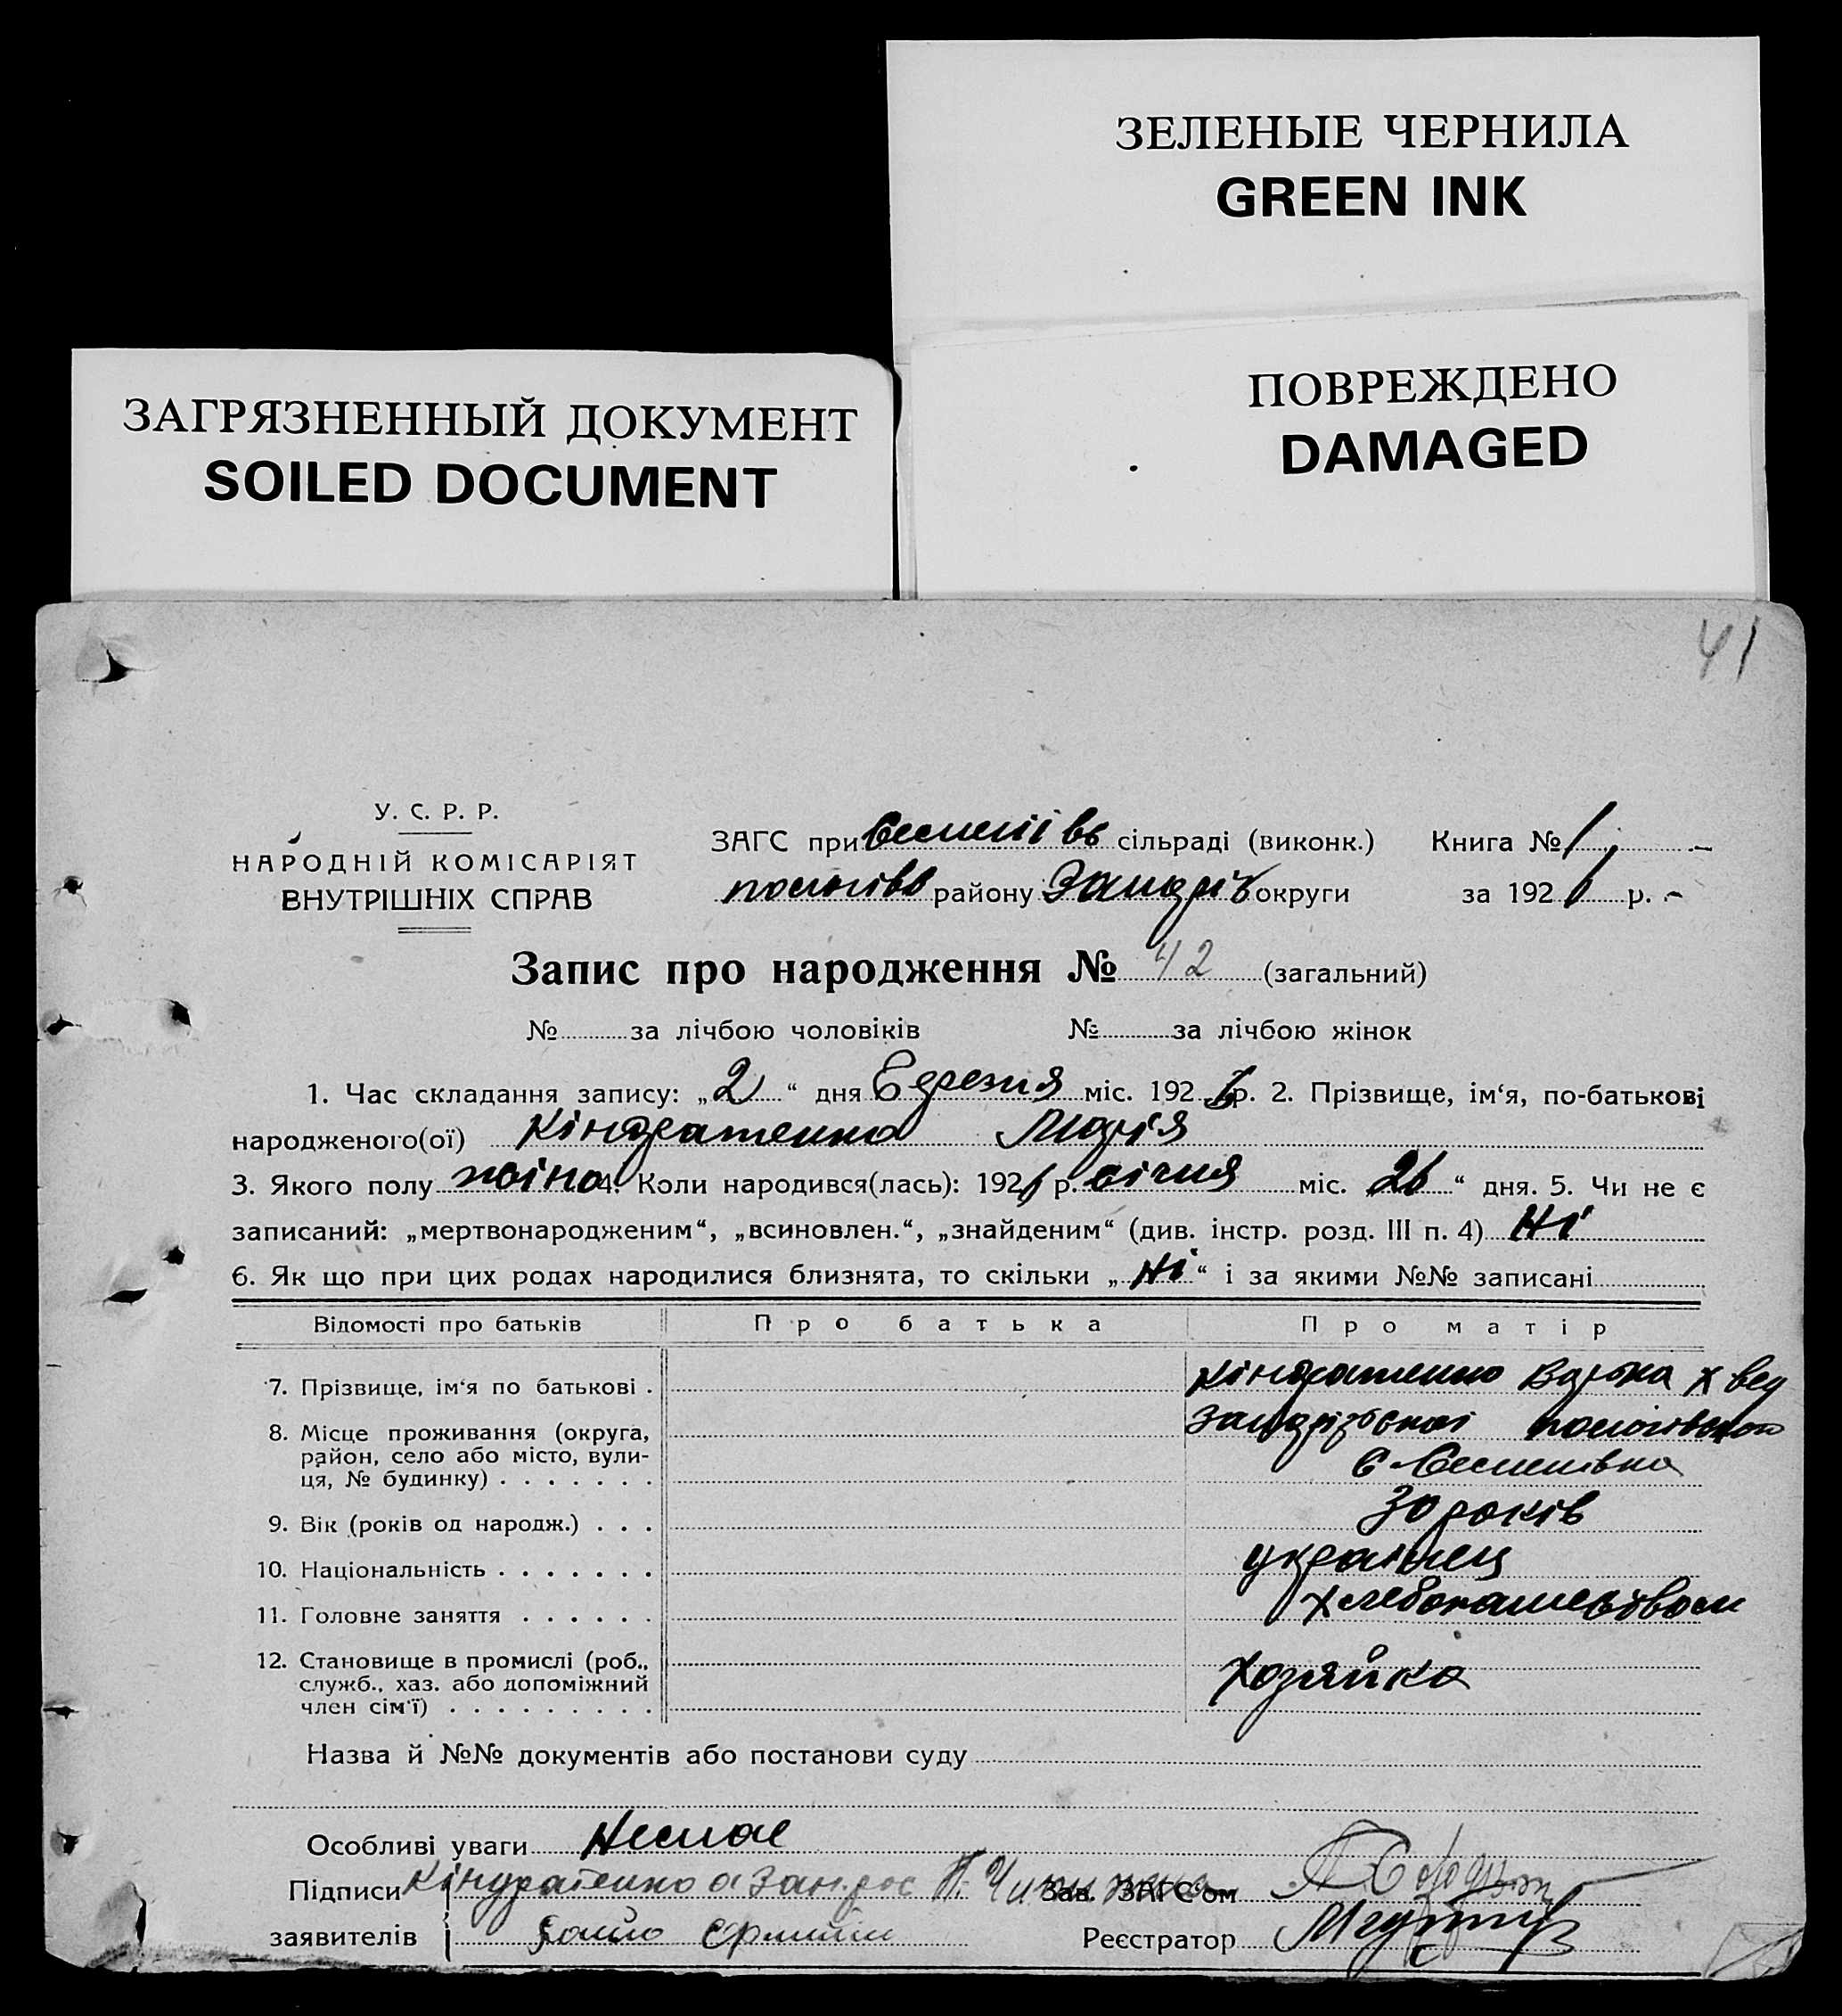 ЗЕЛЕНЫЕ ЧЕРНИЛА
GREEN INK
ЗАГРЯЗНЕННЫЙ ДОКУМЕНТ
SOILED DOCUMENT
ПОВРЕЖДЕНО
DAMAGED
41
У. С. Р. Р.
НАРОДНІЙ КОМІСАРІЯТ
ВНУТРІШНІХ СПРАВ
ЗАГС при сільраді (виконк.) Книга № 1
району округи за 192 р.
Запис про народження № 42 (загальний)
№ за лічбою чоловіків № за лічбою жінок
1. Час складання запису: „2“ дня березня міс. 192 р. 2. Прізвище, ім‘я, по-батькові
народженого(ої) Кіндратенко Марія
3. Якого полу 4. Коли народився(лась): 192 р. січня міс. 26“ дня. 5. Чи не є
записаний: „мертвонародженим“, „всиновлен.“, „знайденим“ (див. інстр. розд. III п. 4) Ні
6. Як що при цих родах народилися близнята, то скільки „Ні“ і за якими №№ записані
Відомості про батьків Про батька Про матір
7. Прізвище, ім‘я по батькові . Кіндратенко Варка Хвед
8. Місце проживання (округа,
район, село або місто, вули-
ця, № будинку) . . . . . . .
9. Вік (років од народж.) . . . 30 років
10. Національність . . . . . . . українец
11. Головне заняття . . . . . .
12. Становище в промислі (роб., хозяйка
служб., хаз. або допоміжний
член сім‘ї) . . . . . . . . .
Назва й №№ документів або постанови суду
Особливі уваги Немає
Підписи Кіндратенко Зав. ЗАГС‘ом
заявителів Реєстратор